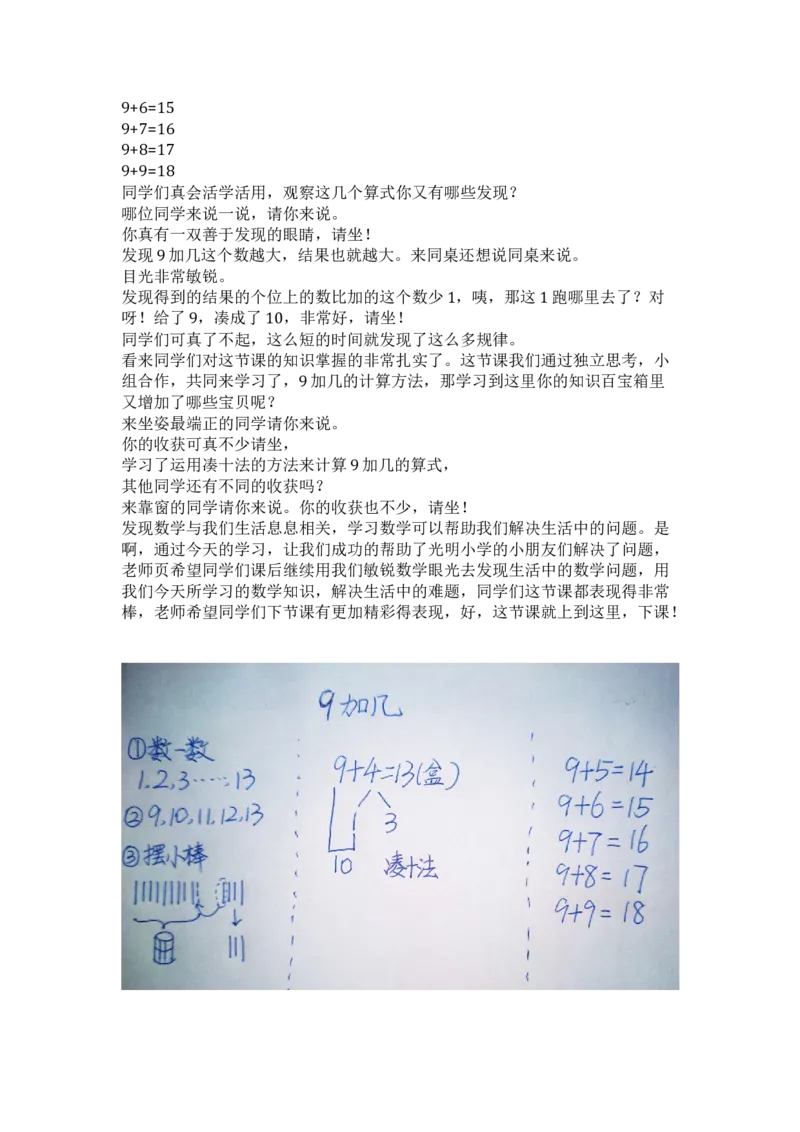 9+6=15
9+7=16
9+8=17
9+9=18
同学们真会活学活用，观察这几个算式你又有哪些发现？
哪位同学来说一说，请你来说。
你真有一双善于发现的眼睛，请坐！
发现9加几这个数越大，结果也就越大。来同桌还想说同桌来说。
目光非常敏锐。
发现得到的结果的个位上的数比加的这个数少1，咦，那这1跑哪里去了？对
呀！给了9，凑成了10，非常好，请坐！
同学们可真了不起，这么短的时间就发现了这么多规律。
看来同学们对这节课的知识掌握的非常扎实了。这节课我们通过独立思考，小
组合作，共同来学习了，9加几的计算方法，那学习到这里你的知识百宝箱里
又增加了哪些宝贝呢？
来坐姿最端正的同学请你来说。
你的收获可真不少请坐，
学习了运用凑十法的方法来计算9加几的算式，
其他同学还有不同的收获吗？
来靠窗的同学请你来说。你的收获也不少，请坐！
发现数学与我们生活息息相关，学习数学可以帮助我们解决生活中的问题。是
啊，通过今天的学习，让我们成功的帮助了光明小学的小朋友们解决了问题，
老师页希望同学们课后继续用我们敏锐数学眼光去发现生活中的数学问题，用
我们今天所学习的数学知识，解决生活中的难题，同学们这节课都表现得非常
棒，老师希望同学们下节课有更加精彩得表现，好，这节课就上到这里，下课！
9加几
①数一数
1,2,3……13
②9,10,11,12,13
③摆小棒
9+4=13(盒)
3
10
凑十法
9+5=14
9+6=15
9+7=16
9+8=17
9+9=18